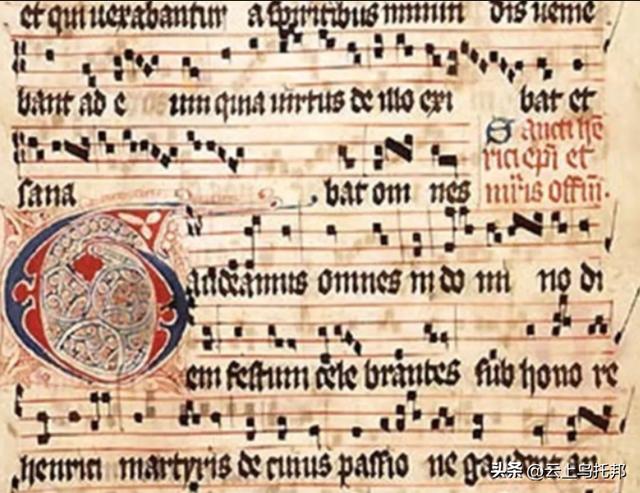 et qui vexabantur a spiritibus inmun dis venie
bant ad e um quia virtus de illo exi bat et
sana bat om nes
Sancti hē
rici epī et
mr̄is offm̄.
Gaudeamus omnes in do mi no di
em festum cele brantes sub hono re
henrici martyris de cuius passio ne gaudent an
头条 @云上乌托邦